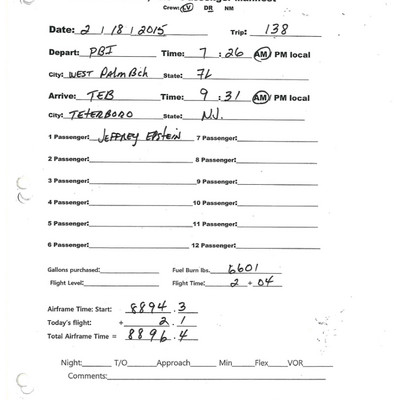 Passenger Manifest
Crew: LV DR NM
Date: 2 / 18 / 2015 Trip: 138
Depart: PBI Time: 7 : 26 AM / PM local
City: WEST PALM BCH State: FL
Arrive: TEB Time: 9 : 31 AM / PM local
City: TETERBORO State: N.J.
1 Passenger: JEFFREY EPSTEIN 7 Passenger:
2 Passenger: 8 Passenger:
3 Passenger: 9 Passenger:
4 Passenger: 10 Passenger:
5 Passenger: 11 Passenger:
6 Passenger: 12 Passenger:
Gallons purchased: Fuel Burn lbs. 6601
Flight Level: Flight Time: 2 + 04
Airframe Time: Start: 8894.3
Today's flight: + 2.1
Total Airframe Time = 8896.4
Night: T/O Approach Min Flex VOR
Comments: